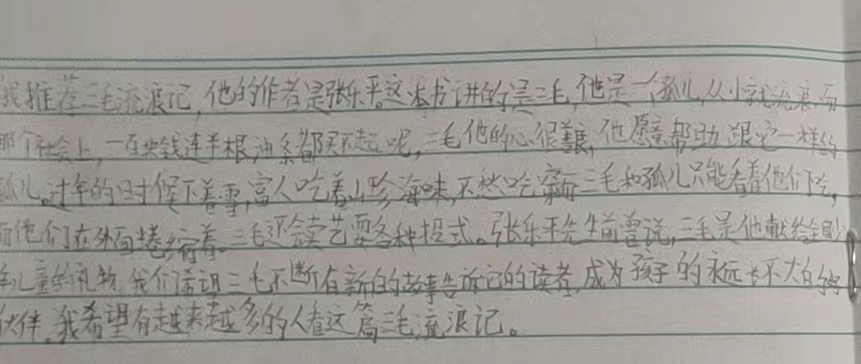 我推荐三毛流浪记,他的作者是张乐平。这本书讲的是三毛,他是一个孤儿,从小就流浪
那个社会上,一百块钱连半根油条都买不起呢,三毛他的心很善良,他愿意帮助跟它一样的
孤儿。过年的时候下着雪,富人吃着山珍海味,不然吃 而三毛和孤儿只能看着他们吃,
而他们在外面蜷缩着。三毛还会卖艺耍各种招式。张乐平先生前曾说,三毛是他献给全
年儿童的礼物,我们希望三毛不断有新的故事告诉它的读者,成为孩子的永远长不大的
伙伴。我希望有越来越多的人看这篇三毛流浪记。